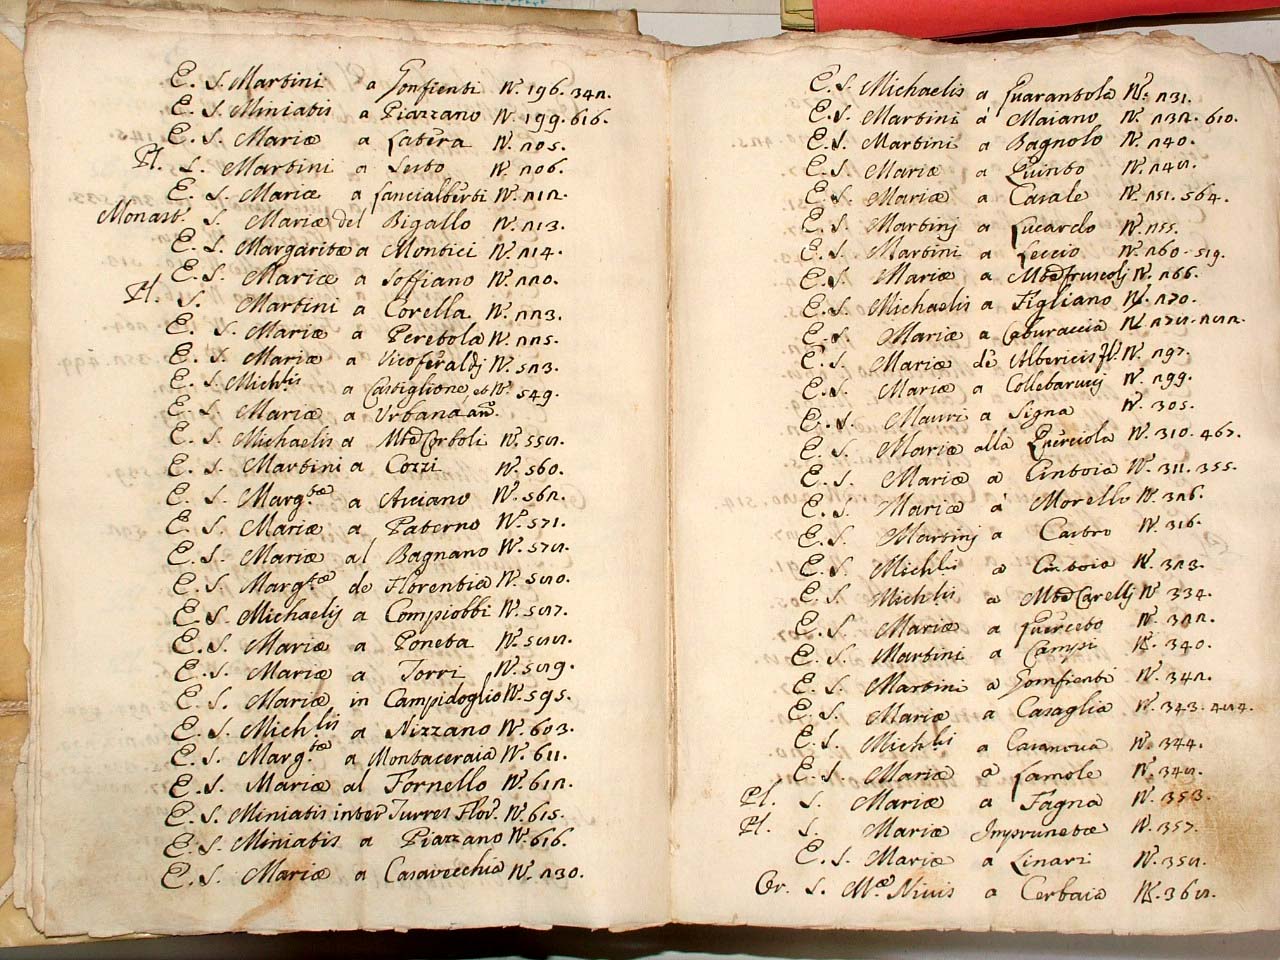 E. S. Martini a Gonfienti N.º 196. 342.
E. S. Miniatis a Piazzano N.º 199. 616.
E. S. Mariæ a Latera N.º 205.
Pl. S. Martini a Sesto N.º 206.
E. S. Mariæ a Lancialberti N.º 212.
Monast. S. Mariæ del Bigallo N.º 213.
E. S. Margaritæ a Montici N.º 214.
E. S. Mariæ a Soffiano N.º 220.
Pl. S. Martini a Corella N.º 223.
E. S. Mariæ a Peretola N.º 225.
E. S. Mariæ a Vicoferaldj N.º 523.
E. S. Mich.lis a Castiglione, et N.º 549.
E. S. Mariæ a Urbana
E. S. Michaelis a MteCorboli N.º 558.
E. S. Martini a Cozzi N.º 560.
E. S. Marg.tæ a Aiciano N.º 562.
E. S. Mariæ a Paterno N.º 571.
E. S. Mariæ al Bagnano N.º 578.
E. S. Marg.tæ de Florentia N.º 580.
E. S. Michaelis a Compiobbi N.º 587.
E. S. Mariæ a Poneta N.º 588.
E. S. Mariæ a Torri N.º 589.
E. S. Mariæ in Campidoglio N.º 595.
E. S. Mich.lis a Nizzano N.º 603.
E. S. Marg.tæ a Montaceraia N.º 611.
E. S. Mariæ al Fornello N.º 612.
E. S. Miniatis inter Turres Flor. N.º 615.
E. S. Miniatis a Piazzano N.º 616.
E. S. Mariæ a Casavecchia N.º 230.
E. S. Michaelis a Quarantola N.º 231.
E. S. Martini à Maiano N.º 232. 610.
E. S. Martini a Bagnolo N.º 240.
E. S. Mariæ a Quinto N.º 248.
E. S. Mariæ a Casale N.º 251. 564.
E. S. Martinj a Lucardo N.º 255.
E. S. Martini a Leccio N.º 260. 519.
E. S. Mariæ a MteFruscolj N.º 266.
E. S. Michaelis a Figliano N.º 270.
E. S. Mariæ a Coburaccia N.º 278. 282.
E. S. Mariæ de Albericis Fl. N.º 297.
E. S. Mariæ a Collebarucij N.º 299.
E. S. Mauri a Signa N.º 305.
E. S. Mariæ alla Querciola N.º 310. 467.
E. S. Mariæ a Cintoia N.º 311. 355.
E. S. Mariæ à Morello N.º 326.
E. S. Martinj a Castro N.º 316.
E. S. Mich.lis a Cintoia N.º 323.
E. S. Mich.lis a MteCarellj N.º 334.
E. S. Mariæ a Querceto N.º 322.
E. S. Martini a Campi N.º 340.
E. S. Martini a Gomfienti N.º 342.
E. S. Mariæ a Casaglia N.º 343. 484.
E. S. Mich.lis a Casanova N.º 344.
E. S. Mariæ a Lamole N.º 348.
Pl. S. Mariæ a Fagna N.º 353.
Pl. S. Mariæ Imprunetæ N.º 357.
E. S. Mariæ a Linari N.º 358.
Or. S. M.æ Nivis a Cerbaia N.º 368.